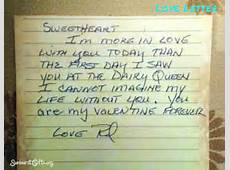 LOVE LETTER...
SWEETHEART
I'M MORE IN LOVE
WITH YOU TODAY THAN
THE FIRST DAY I SAW
YOU AT THE DAIRY QUEEN
I CANNOT IMAGINE MY
LIFE WITHOUT YOU. YOU
ARE MY VALENTINE FOREVER
LOVE